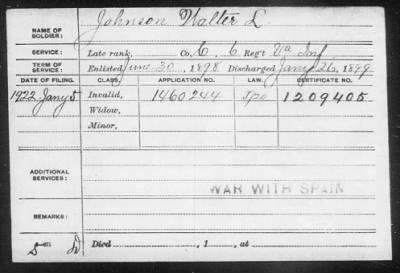 NAME OF SOLDIER: Johnson Walter L.
SERVICE: Late rank, Co. C, 6 Reg't Va Inf
TERM OF SERVICE: Enlisted June 30, 1898 Discharged Jany 26, 1899
DATE OF FILING. CLASS. APPLICATION NO. LAW. CERTIFICATE NO.
1922 Jany 5 Invalid, 1460244 1209405
Widow,
Minor,
ADDITIONAL SERVICES:
WAR WITH SPAIN
REMARKS:
Died , 1 , at